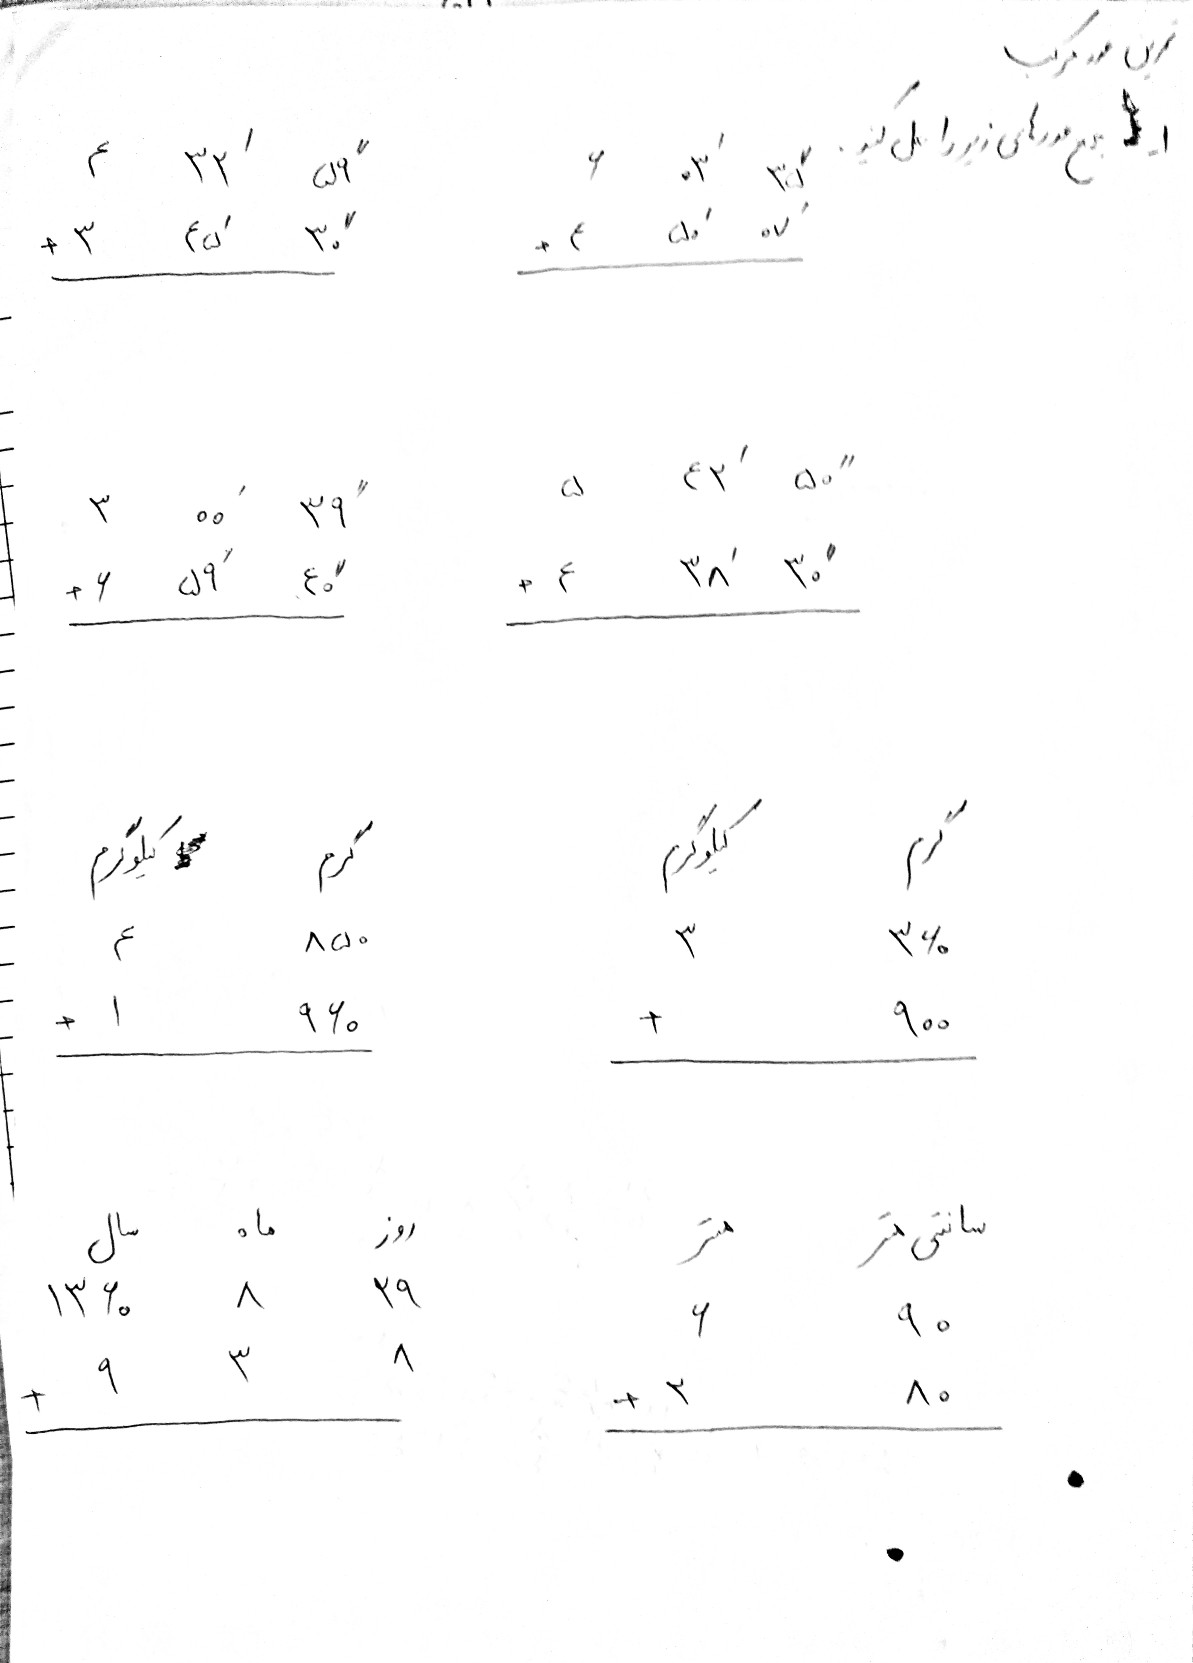 تمرین عدد مرکب
۱ـ جمع عددهای زیر را حل کنید.
۶ ۰۳′ ۳۵″
+ ۴ ۵۰′ ۰۷′
۴ ۳۲′ ۵۹″
+ ۳ ۴۵′ ۳۰″
۵ ۴۲′ ۵۰″
+ ۴ ۳۸′ ۳۰″
۳ ۰۰′ ۳۹″
+ ۶ ۵۹′ ۴۰″
کیلوگرم گرم
۳ ۳۶۰
+ ۹۰۰
کیلوگرم گرم
۴ ۸۵۰
+ ۱ ۹۶۰
متر سانتی متر
۶ ۹۰
+ ۲ ۸۰
سال ماه روز
۱۳۶۰ ۸ ۲۹
+ ۹ ۳ ۸